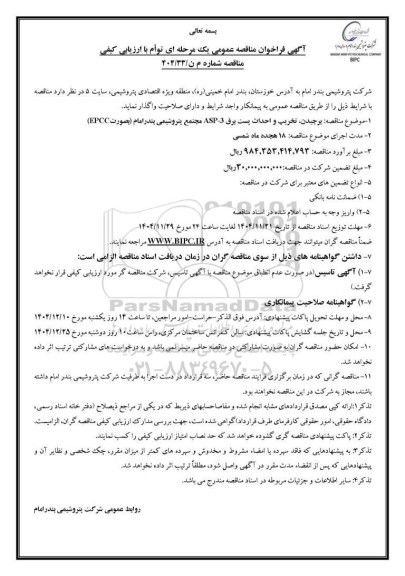 بسمه تعالی
BIPC
آگهی فراخوان مناقصه عمومی یک مرحله ای توأم با ارزیابی کیفی
مناقصه شماره م ن/۴۰۴/۳۳
شرکت پتروشیمی بندر امام به آدرس خوزستان، بندر امام خمینی(ره)، منطقه ویژه اقتصادی پتروشیمی، سایت ۵ در نظر دارد مناقصه
با شرایط ذیل را از طریق مناقصه عمومی به پیمانکار واجد شرایط و دارای صلاحیت واگذار نماید.
۱-موضوع مناقصه: برچیدن، تخریب و احداث پست برق ASP-3 مجتمع پتروشیمی بندرامام (بصورت EPCC)
۲-مدت اجرای موضوع مناقصه: ۱۸ هجده ماه شمسی
۳- مبلغ برآورد مناقصه: ۹۸۴,۳۵۳,۴۱۴,۷۹۳ ریال
۴- مبلغ تضمین شرکت در مناقصه: ۳۰,۰۰۰,۰۰۰,۰۰۰ ریال
۵- انواع تضمین های معتبر برای شرکت در مناقصه:
۵-۱) ضمانت نامه بانکی
۵-۲) واریز وجه به حساب اعلام شده در اسناد مناقصه
۶- مهلت توزیع اسناد مناقصه از تاریخ ۱۴۰۴/۱۱/۲۱ لغایت ساعت ۲۴ مورخ ۱۴۰۴/۱۱/۲۹
ضمناً مناقصه گران میتوانند جهت دریافت اسناد مناقصه به آدرس WWW.BIPC.IR مراجعه نمایند.
۷- داشتن گواهینامه های ذیل از سوی مناقصه گران در زمان دریافت اسناد مناقصه الزامی است:
۷-۱) آگهی تاسیس(در صورت عدم انطباق موضوع مناقصه با آگهی تاسیس، شرکت مناقصه گر مورد ارزیابی کیفی قرار نخواهد
گرفت).
۷-۲) گواهینامه صلاحیت پیمانکاری
۸- محل و مهلت تحویل پاکات پیشنهادی: آدرس فوق الذکر-حراست-امور مراجعین، تا ساعت ۱۴ روز یکشنبه مورخ ۱۴۰۴/۱۲/۱۰
۹- محل و تاریخ جلسه گشایش پاکات پیشنهادی: سالن کنفرانس ساختمان مرکزی، راس ساعت ۱۰ روز دوشنبه مورخ ۱۴۰۴/۱۲/۲۵
۱۰- امکان حضور مناقصه گران به صورت مشارکتی در مناقصه حاضر میسر نمی باشد و به درخواست های مشارکتی ترتیب اثر داده
نخواهد شد.
۱۱- مناقصه گرانی که در زمان برگزاری فرایند مناقصه حاضر، سه قرارداد در دست اجرا به ظرفیت شرکت پتروشیمی بندر امام داشته
باشند، مجاز به شرکت در این مناقصه نخواهند بود.
تذکر۱:ارائه کپی مصدق قراردادهای مشابه انجام شده و مفاصاحسابهای ذیربط که در یکی از مراجع ذیصلاح (دفتر خانه اسناد رسمی،
دادگاه حقوقی، امور حقوقی کارفرمای طرف قرارداد)گواهی شده است، جهت بررسی مدارک ارزیابی کیفی مناقصه گران، الزامیست.
تذکر۲: پاکت پیشنهادی مناقصه گری گشوده خواهد شد که حد نصاب امتیاز ارزیابی کیفی را کسب نمایند.
تذکر۳: به پیشنهادهایی که فاقد سپرده یا امضاء مشروط و مخدوش و سپرده های کمتر از میزان مقرر، چک شخصی و نظایر آن و
پیشنهادهایی که پس از انقضاء مدت مقرر در آگهی واصل شود، مطلقاً ترتیب اثر داده نخواهد شد.
تذکر۴: سایر اطلاعات و جزئیات مربوطه در اسناد مناقصه مندرج می باشد.
روابط عمومی شرکت پتروشیمی بندرامام
ParsNamadData
۰۲۱-۸۸۳۴۹۶۷۰-۵